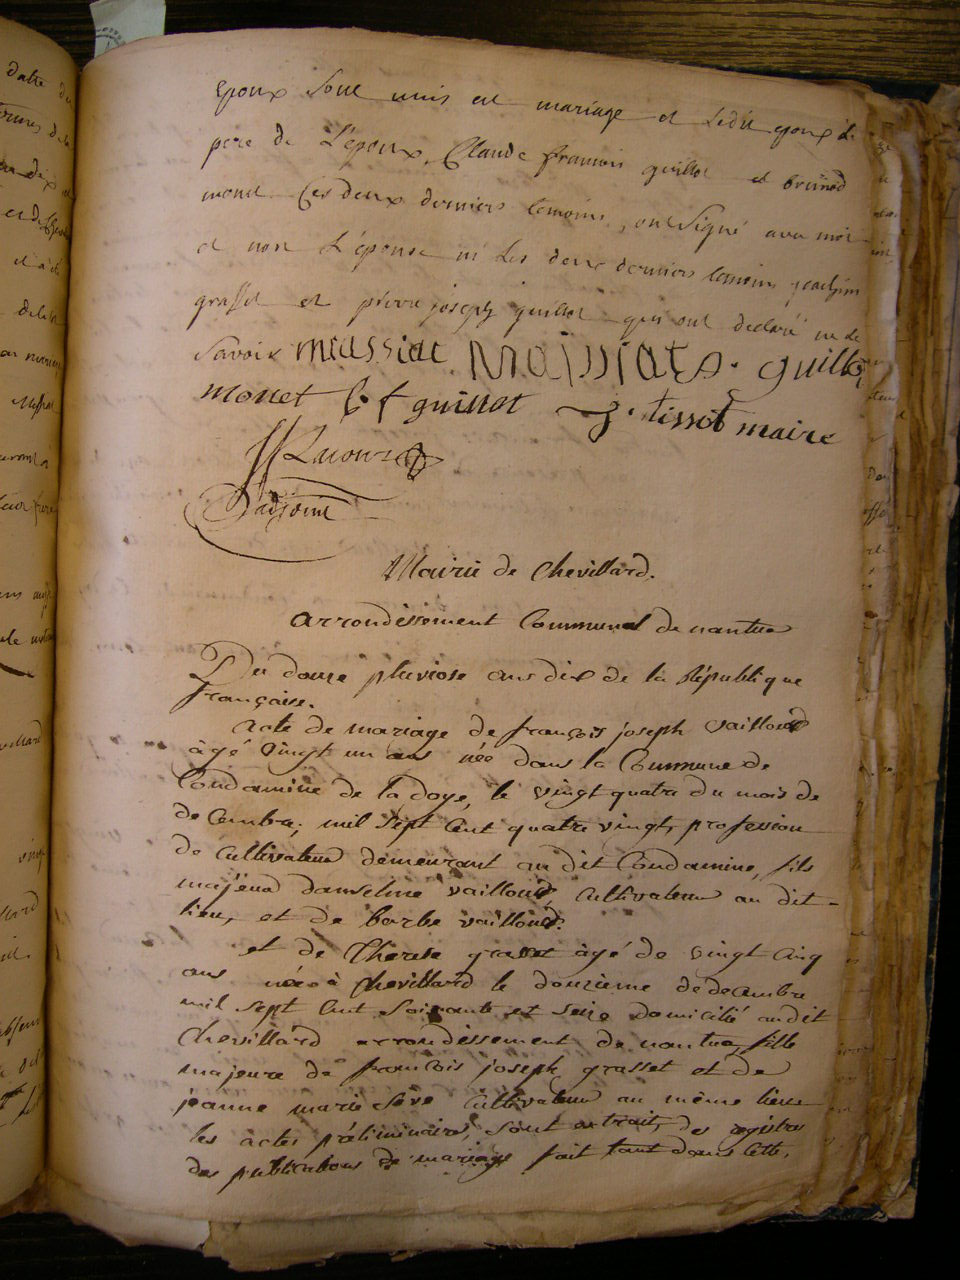 Epoux sont unis en mariage et Ledit epoux le
pere de L'époux, Claude françois guillot et brunod
monet Ces deux derniers temoins, ont Signé avec moi
et non L'épouse ni Les deux derniers temoins joachim
grasset et pierre joseph guillot qui ont declaré ne le
Savoir massiat Massiat guillot
monet C. f guillot tissot maire
Lacour
Dadjoint
Mairie de Chevillard.
arrondissement Communal de nantua
Du douze pluviose ans dix de la République
française.
acte de mariage de françois joseph vailloud
âgé vingt un ans née dans la Commune de
Condamine de la doye, le vingt quatre du mois de
decembre, mil sept Cent quatre vingt, profession
de Cultivateur demeurant au dit Condamine, fils
majeur danselme vailloud, Cultivateur au dit
lieu, et de barbe vailloud.
et de Therese grasset âgé de vingt cinq
ans née à Chevillard le douzieme de decembre
mil sept Cent Soixante et Seize domicilié audit
Chevillard arrondissement de nantua, fille
majeure de françois joseph grasset et de
jeanne marie Sève Cultivateur au même lieu
les actes préliminaires, sont extrait, des registres
des publications de mariage fait tant dans Cette,